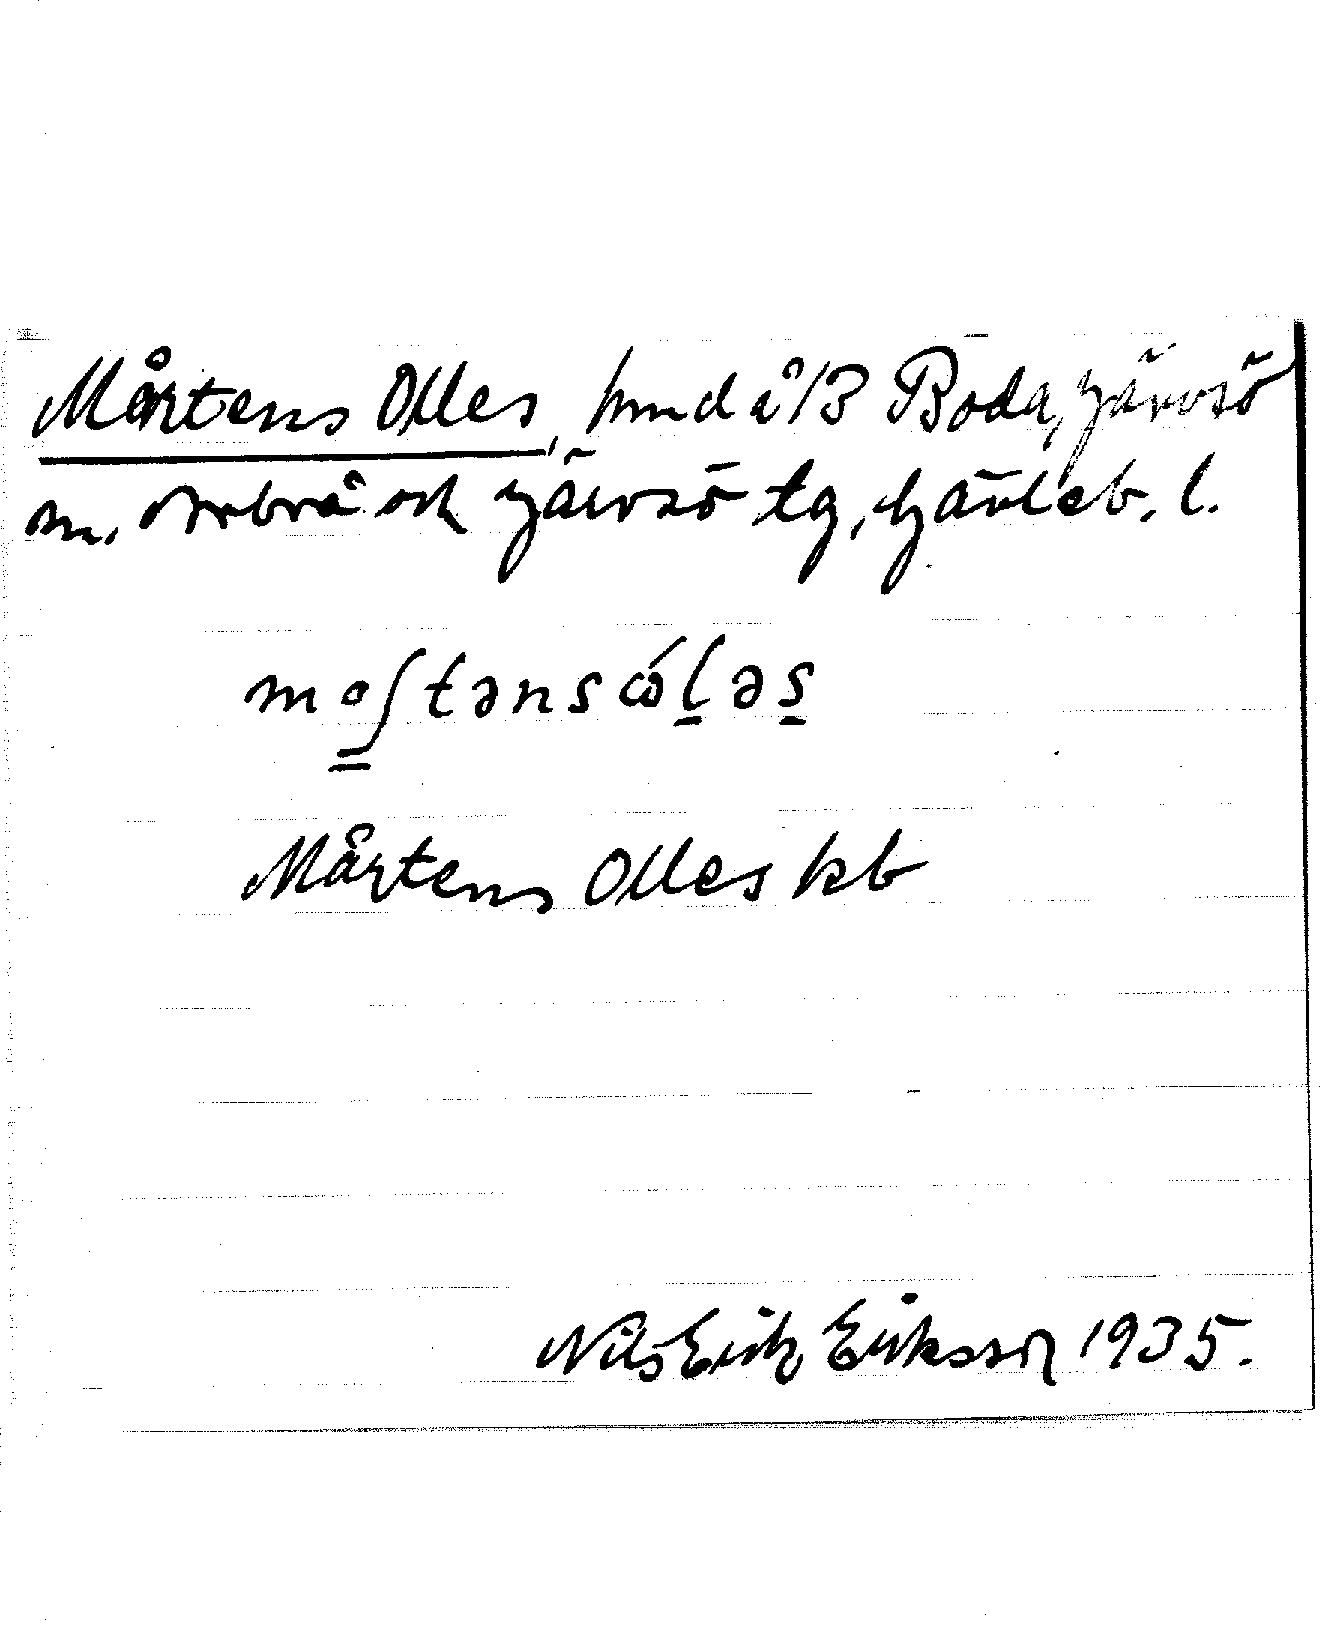 Mårtens Olles, hmd å 1/3 Boda, Järvsö
sn, Arbrå och Järvsö tg, Gävleb. l.
moʃtənsɷ́ləs
Mårtens Olles kb
Nils Erik Eriksson 1935.